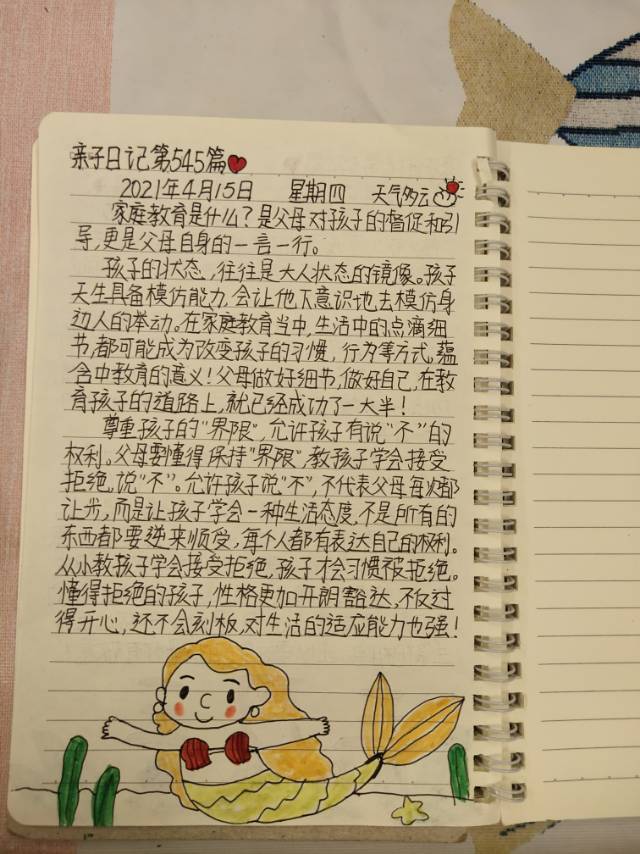 亲子日记第545篇
2021年4月15日 星期四 天气多云
家庭教育是什么?是父母对孩子的督促和引
导,更是父母自身的一言一行。
孩子的状态,往往是大人状态的镜像。孩子
天生具备模仿能力,会让他下意识地去模仿身
边人的举动。在家庭教育当中,生活中的点滴细
节,都可能成为改变孩子的习惯,行为等方式,蕴
含中教育的意义!父母做好细节,做好自己,在教
育孩子的道路上,就已经成功了一大半!
尊重孩子的"界限",允许孩子有说"不"的
权利。父母要懂得保持"界限",教孩子学会接受
拒绝,说"不"。允许孩子说"不",不代表父母每次都
让步,而是让孩子学会一种生活态度,不是所有的
东西都要逆来顺受,每个人都有表达自己的权利。
从小教孩子学会接受拒绝,孩子才会习惯被拒绝。
懂得拒绝的孩子,性格更加开朗豁达,不仅过
得开心,还不会刻板,对生活的适应能力也强!